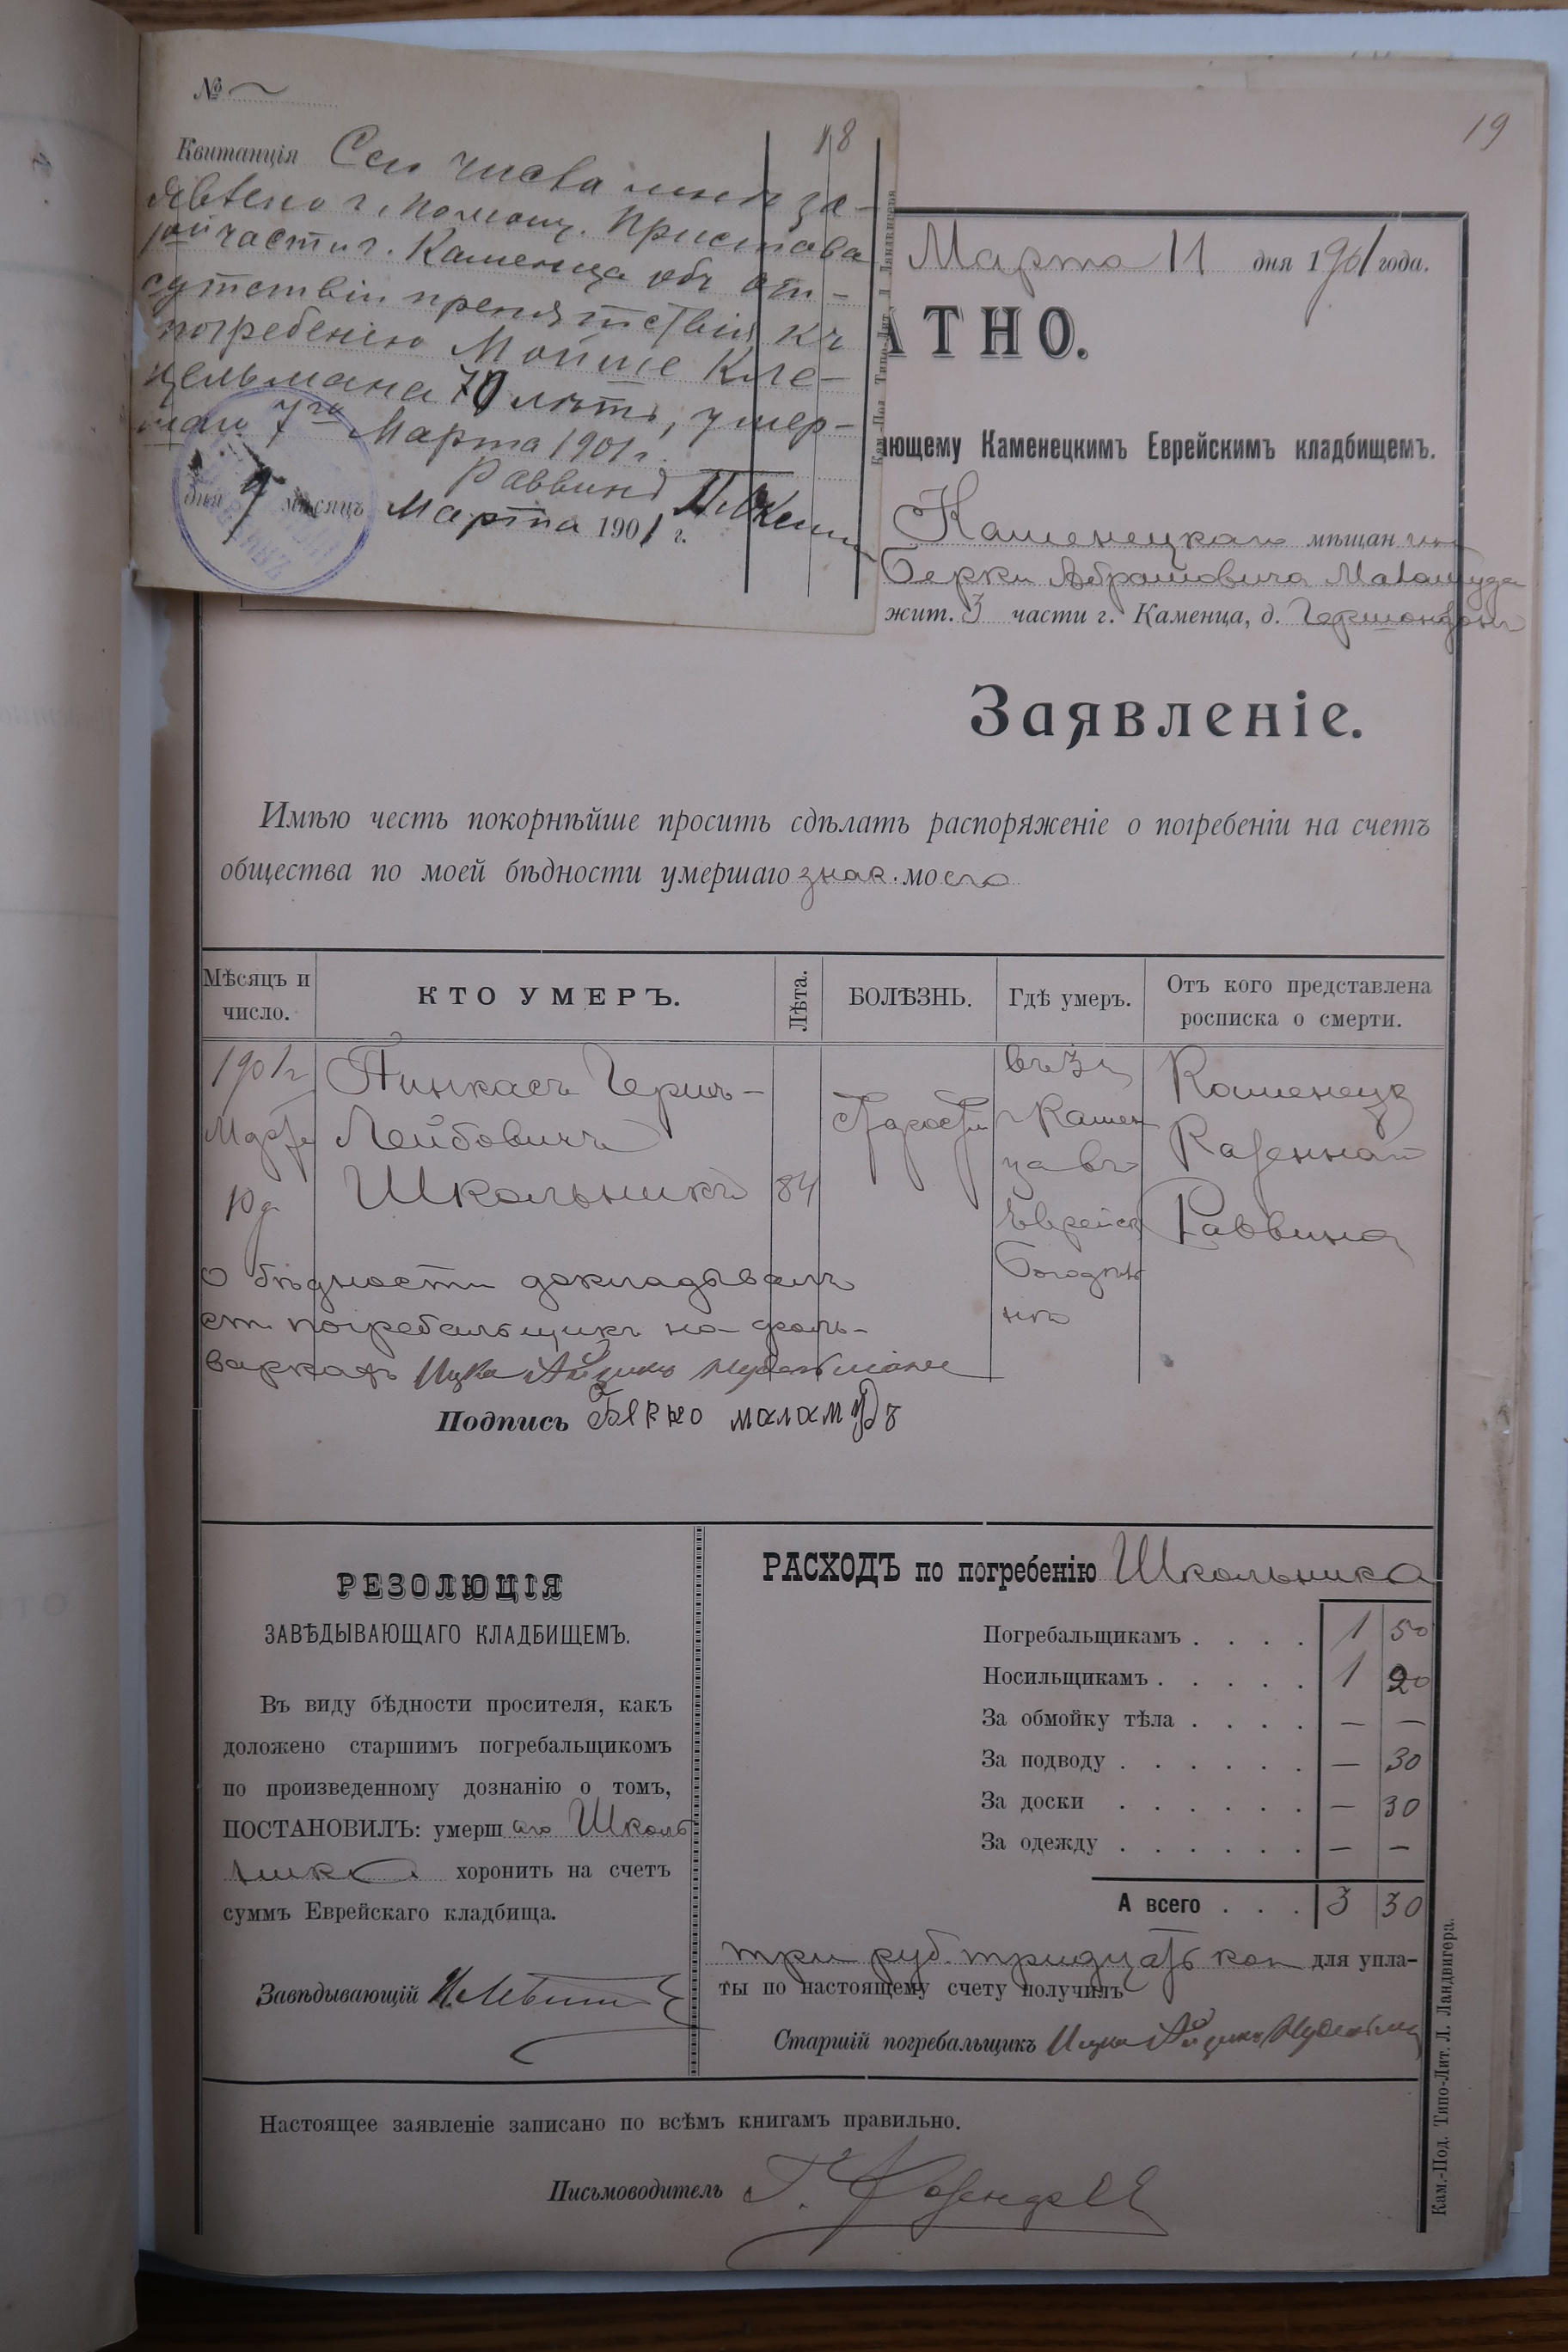 №
18
Квитанція Сего числа мною за-
явлено г. Помощ. Пристава
1ой части г. Каменца объ от-
сутствіи препятствія къ
погребенію Мойше Кле-
цельмана 70 лѣтъ, умер-
шаго 7го Марта 1901 г.
Раввинъ
дня 9 мѣсяцъ Марта 1901 г.
19
Марта 11 дня 1901 года.
АТНО.
ающему Каменецкимъ Еврейскимъ кладбищемъ.
Каменецкаго мѣщанина
Берки Абрамовича Маламуда
жит. 3 части г. Каменца, д.
Заявленіе.
Имѣю честь покорнѣйше просить сдѣлать распоряженіе о погребеніи на счетъ
общества по моей бѣдности умершаго знак. моего
Мѣсяцъ и число.
КТО УМЕРЪ.
Лѣта.
БОЛѢЗНЬ.
Гдѣ умеръ.
Отъ кого представлена росписка о смерти.
1901 г.
Марта
10 д.
Пинкасъ Герш-
Лейбовичъ
Школьникъ
84
старости
въ 3 ч
г Камен
ца въ
Еврейск
Богодѣль
нѣ
Каменецк
Казеннаго
Раввина
о бѣдности докладывалъ
ст. погребальщикъ на фоль-
варкахъ Ицка Айзикъ
Подпись Берко маламудъ
РЕЗОЛЮЦІЯ
ЗАВѢДЫВАЮЩАГО КЛАДБИЩЕМЪ.
Въ виду бѣдности просителя, какъ
доложено старшимъ погребальщикомъ
по произведенному дознанію о томъ,
ПОСТАНОВИЛЪ: умерш аго Школь
ника хоронить на счетъ
суммъ Еврейскаго кладбища.
Завѣдывающій
РАСХОДЪ по погребенію Школьника
Погребальщикамъ . . . . 1 50
Носильщикамъ . . . . . 1 20
За обмойку тѣла . . . . — —
За подводу . . . . . . — 30
За доски . . . . . . — 30
За одежду . . . . . . — —
А всего . . . 3 30
три руб. тридцать коп для упла-
ты по настоящему счету получилъ
Старшій погребальщикъ Ицка Айзикъ
Настоящее заявленіе записано по всѣмъ книгамъ правильно.
Письмоводитель
Кам.-Под. Типо-Лит. Л. Ландвигера.